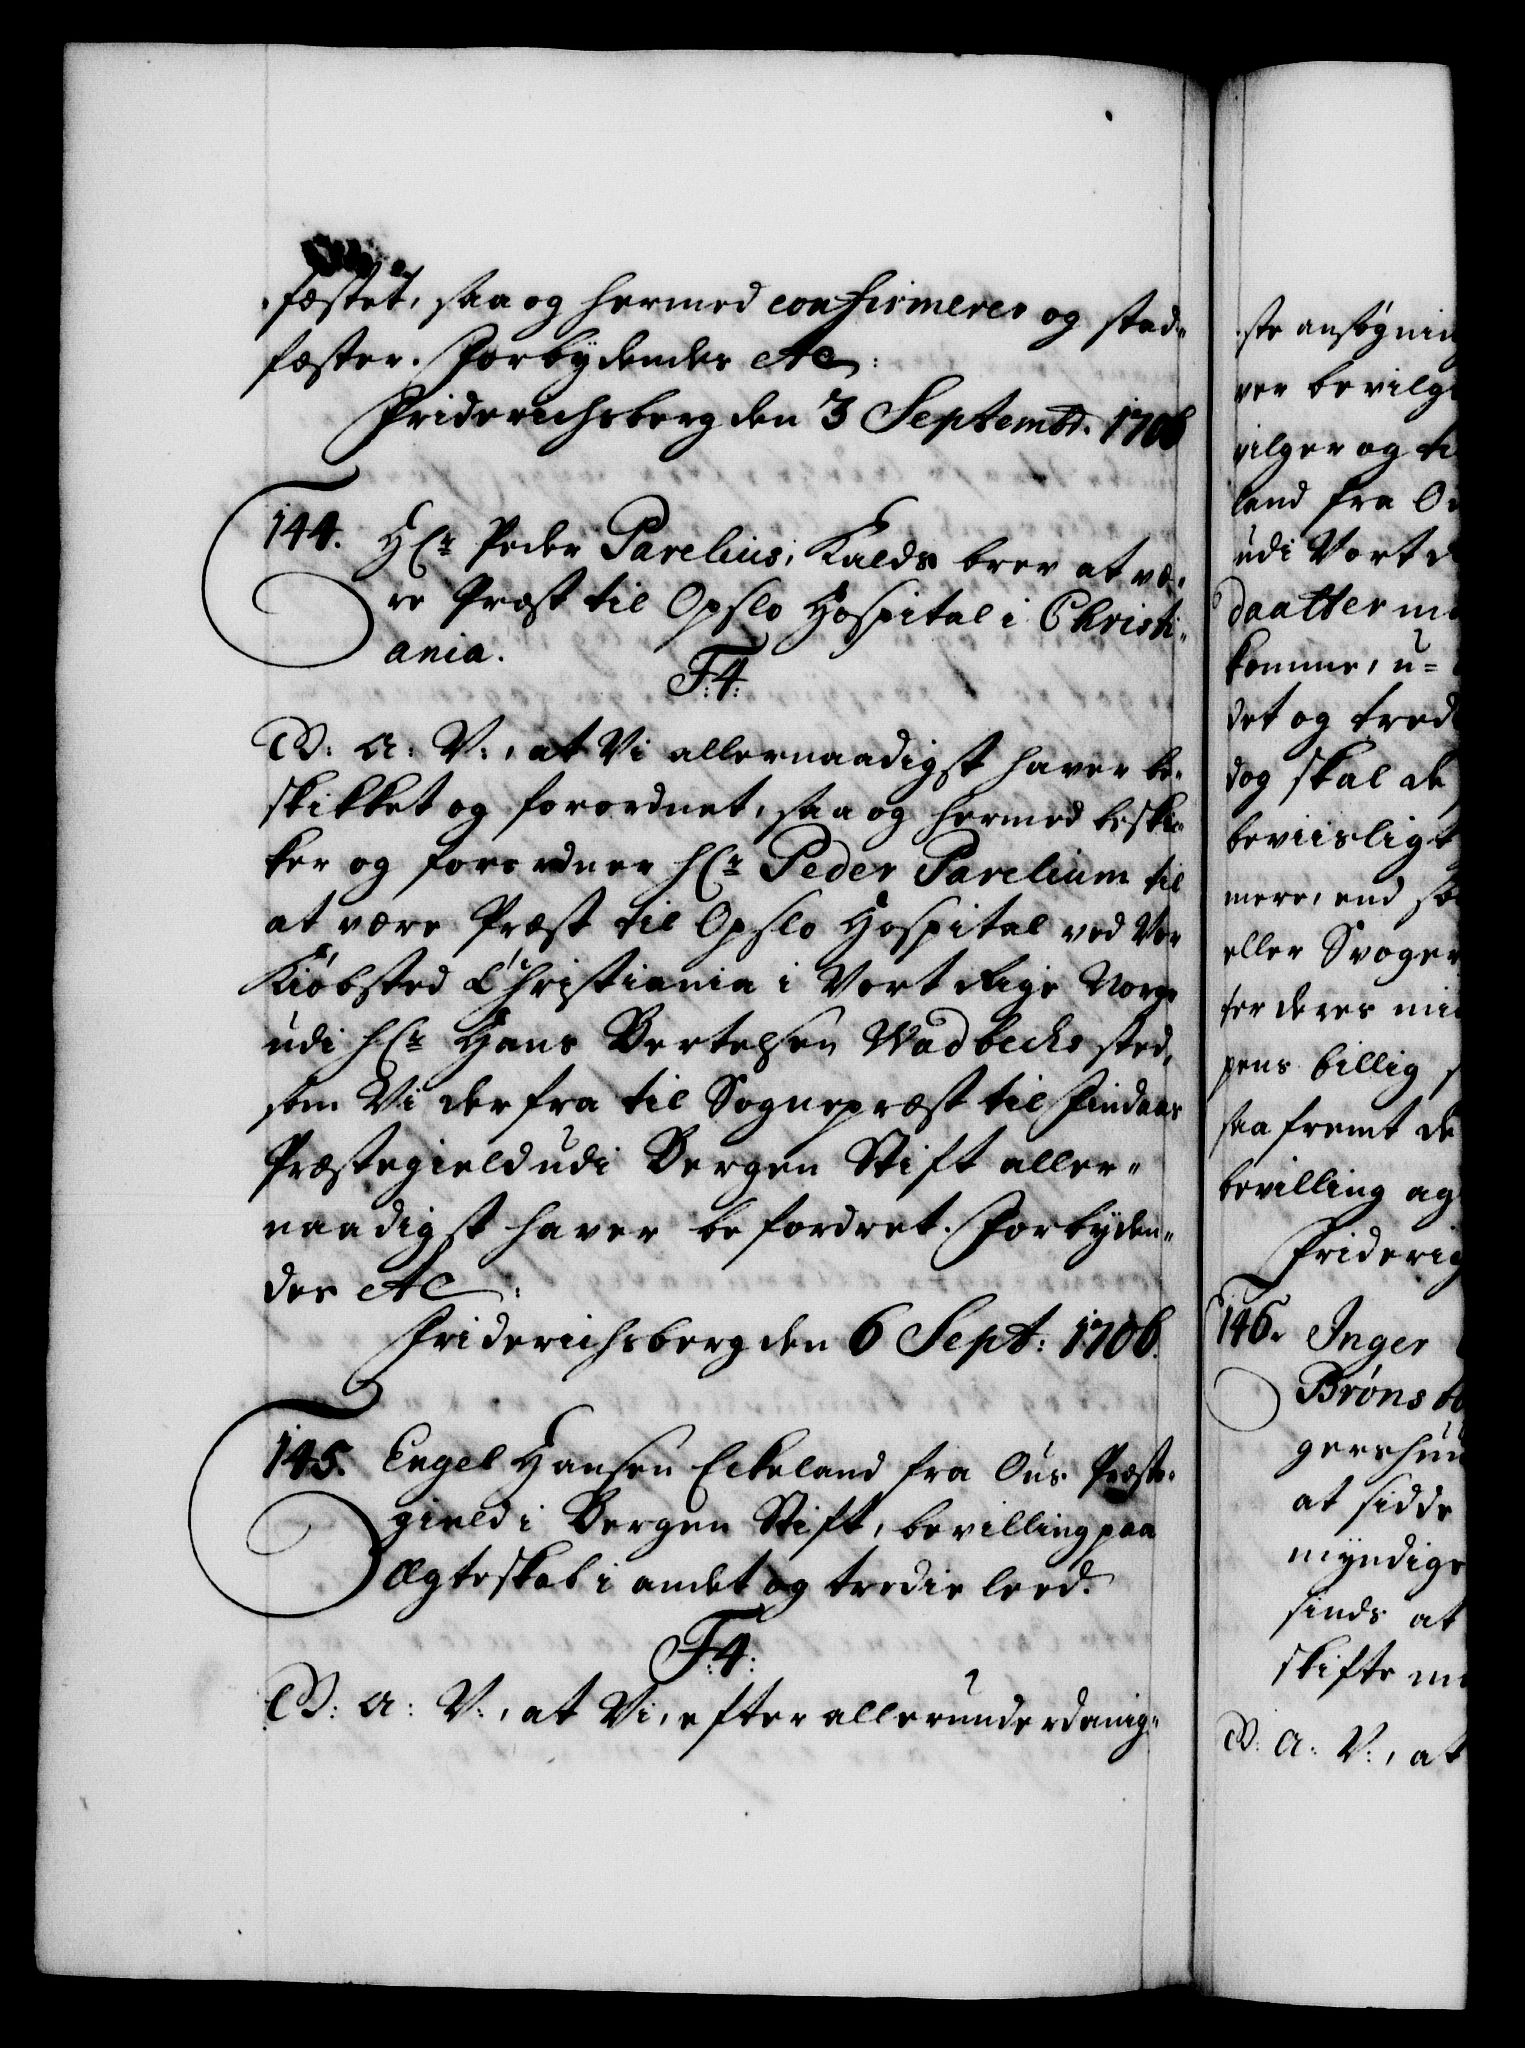 fæstet, saa og hermed confirmerer og stad-
fæster. Forbydendes etc:
Friderichsberg den 3 Septembr. 1706
144. Hr Peder Parelius, Kalds brev at væ-
re Præst til Opslo Hospital i Christi-
ania.
F:4:
G: A: V:, at Vi allernaadigst haver be-
skikket og forordnet, saa og hermed beskik-
ker og forordner Hr Peder Parelium til
at være Præst til Opslo Hospital ved Vor
Kiøbsted Christiania i Vort Rige Norge
udi Hr Hans Bertelsen Wadbecks sted,
som Vi derfra til Sognepræst til Findaas
Præstegield udi Bergen Stift aller-
naadigst haver befordret. Forbyden-
des etc:
Friderichsberg den 6 Sept: 1706.
145. Engel Hansen Eckeland fra Ous Præste-
gield i Bergen Stift, bevilling paa
Ægteskab i andet og tredie leed.
F:4:
G: A: V:, at Vi, efter allerunderdanig-
ste ansøgning
ver bevilg
vilger og ti
land fra O
udi Vort
daatter m
komme, u-
det og tred
dog skal de
beviisligt
mere, end
eller Svoger
ter deres mi
pens billig s
saafremt de
bevilling ag
Friderig
146. Inger
Brøns
gershuu
at sidde
myndige
sinds at
skifte m
G: A: V:, at